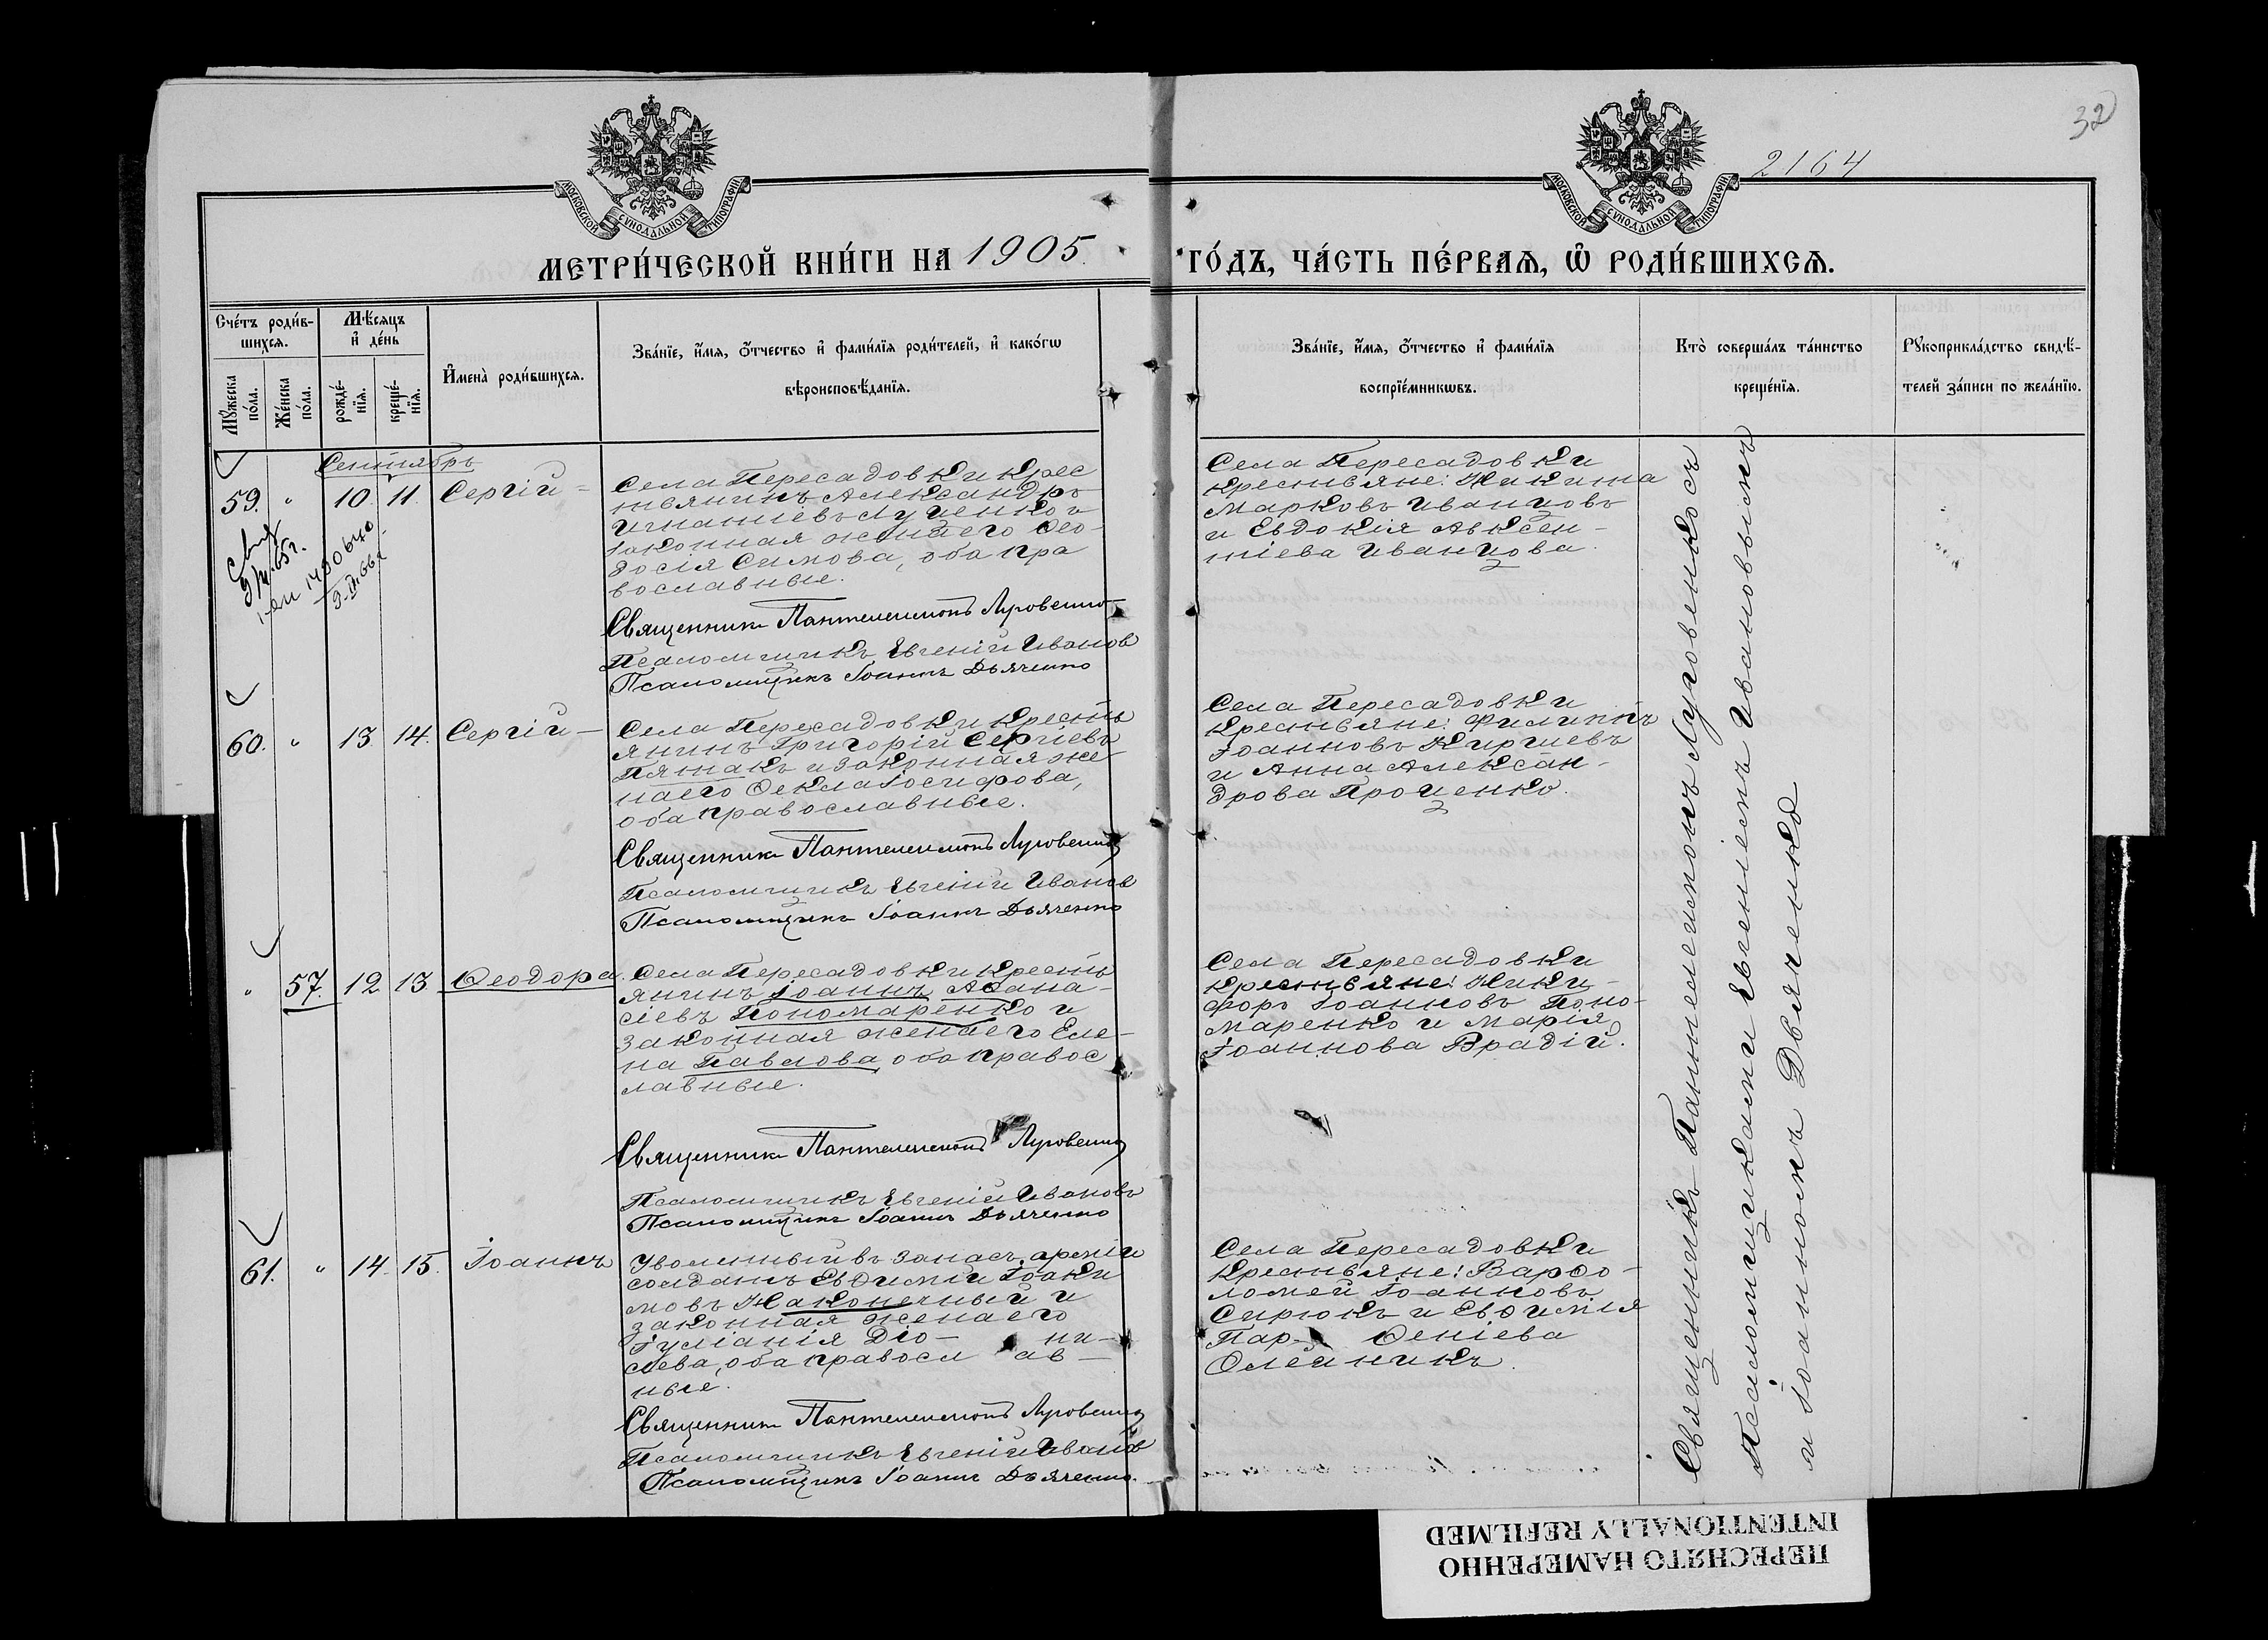 32
2164
МОСКОВСКОЙ СѴНОДАЛЬНОЙ ТИПОГРАФІИ
МОСКОВСКОЙ СѴНОДАЛЬНОЙ ТИПОГРАФІИ
МЕТРИ́ЧЕСКОЙ КНИ́ГИ НА 1905 ГО́ДЪ, ЧА́СТЬ ПЕ́РВАѦ, Ѽ РОДИ́ВШИХСѦ.
Сче́тъ роди́в-
шихсѧ.
Мꙋ́жеска по́ла.
Же́нска по́ла.
Мѣ́сѧцъ
и҆ де́нь
рожде́-
нїѧ.
креще́-
нїѧ.
И҆мена̀ роди́вшихсѧ.
Зва́нїе, и҆́мѧ, ѻ҆́тчество и҆ фами́лїѧ роди́телей, и҆ како́гѡ
вѣроисповѣ́данїѧ.
Зва́нїе, и҆́мѧ, ѻ҆́тчество и҆ фами́лїѧ
воспрїе́мникѡвъ.
Кто̀ соверша́лъ та́инство
креще́нїѧ.
Рꙋкоприкла́дство свидѣ́-
телей за́писи по жела́нїю.
Сентябрь
59. " 10. 11. Сергій
Села Пересадовки крес
тьянинъ Александръ
Игнатіевъ Луценко и
законная жена его Ѳео-
досія Симова, оба пра
вославные.
Священникъ Пантелеимонъ Луговенко
Псаломщикъ Евгеній Ивановъ
Псаломщикъ Іоаннъ Дьяченко
Села Пересадовки
крестьяне: Никита
Марковъ Иванцовъ
и Евдокія Авксен-
тіева Иванцова.
60. " 13 14. Сергій
Села Пересадовки кресть
янинъ Григорій Сергіевъ
Пятакъ и законная же
на его Ѳекла Іосифова,
оба православные.
Священникъ Пантелеимонъ Луговенко
Псаломщикъ Евгеній Ивановъ
Псаломщикъ Іоаннъ Дьяченко
Села Пересадовки
крестьяне: Филиппъ
Іоанновъ Киргиевъ
и Анна Алексан-
дрова Проценко.
" 57. 12 13 Ѳеодора.
Села Пересадовки кресть
янинъ Іоаннъ Аѳана-
сіевъ Пономаренко и
законная жена его Еле-
на Павлова, оба правос
лавные.
Священникъ Пантелеимонъ Луговенко
Псаломщикъ Евгеній Ивановъ
Псаломщикъ Іоаннъ Дьяченко
Села Пересадовки
крестьяне: Ники-
форъ Іоанновъ Поно-
маренко и Марія
Іоаннова Врадій.
61. " 14. 15. Іоаннъ
Уволенный въ запасъ арміи
солдатъ Евѳимій Іоаки
мовъ Наконечный и
законная жена его
Іуліанія Діо- ни-
сіева, оба правосл ав-
ные.
Священникъ Пантелеимонъ Луговенко
Псаломщикъ Евгеній Ивановъ
Псаломщикъ Іоаннъ Дьяченко.
Села Пересадовки
крестьяне: Варѳо-
ломей Іоанновъ
Сирюкъ и Евѳимія
Пар- ѳеніева
Олейникъ.
Священникъ Пантелеимонъ Луговенко съ
Псаломщиками Евгеніемъ Ивановымъ
и Іоанномъ Дьяченко
ПЕРЕСНЯТО НАМЕРЕННО
INTENTIONALLY REFILMED